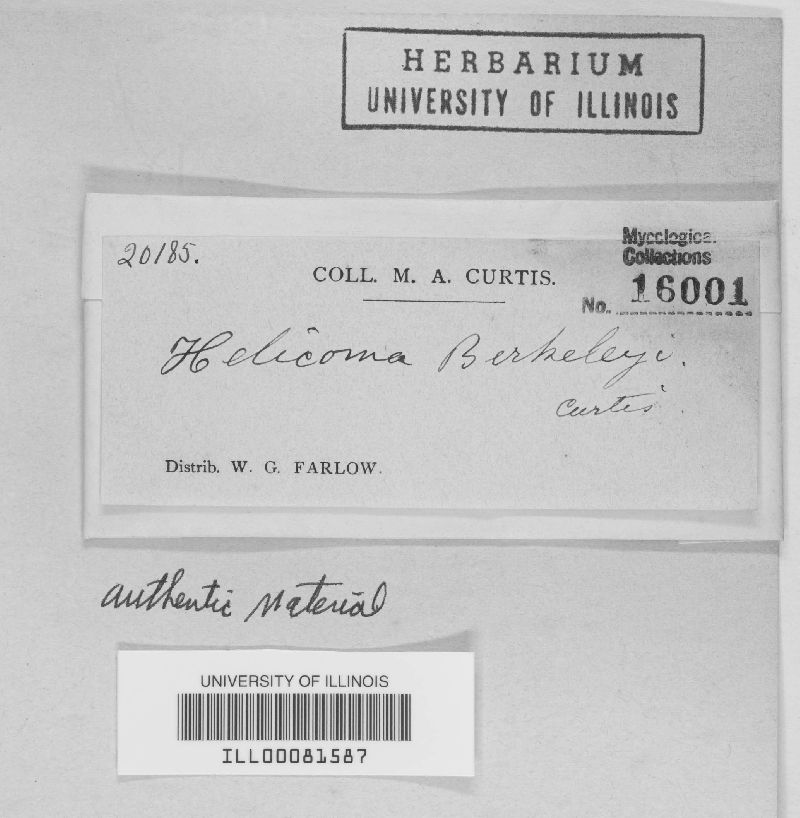 HERBARIUM
UNIVERSITY OF ILLINOIS
20185.
Mycological
Collections
No. 16001
COLL. M. A. CURTIS.
Helicoma Berkeleyi.
Curtis.
Distrib. W. G. FARLOW.
authentic Material
UNIVERSITY OF ILLINOIS
ILL00081587